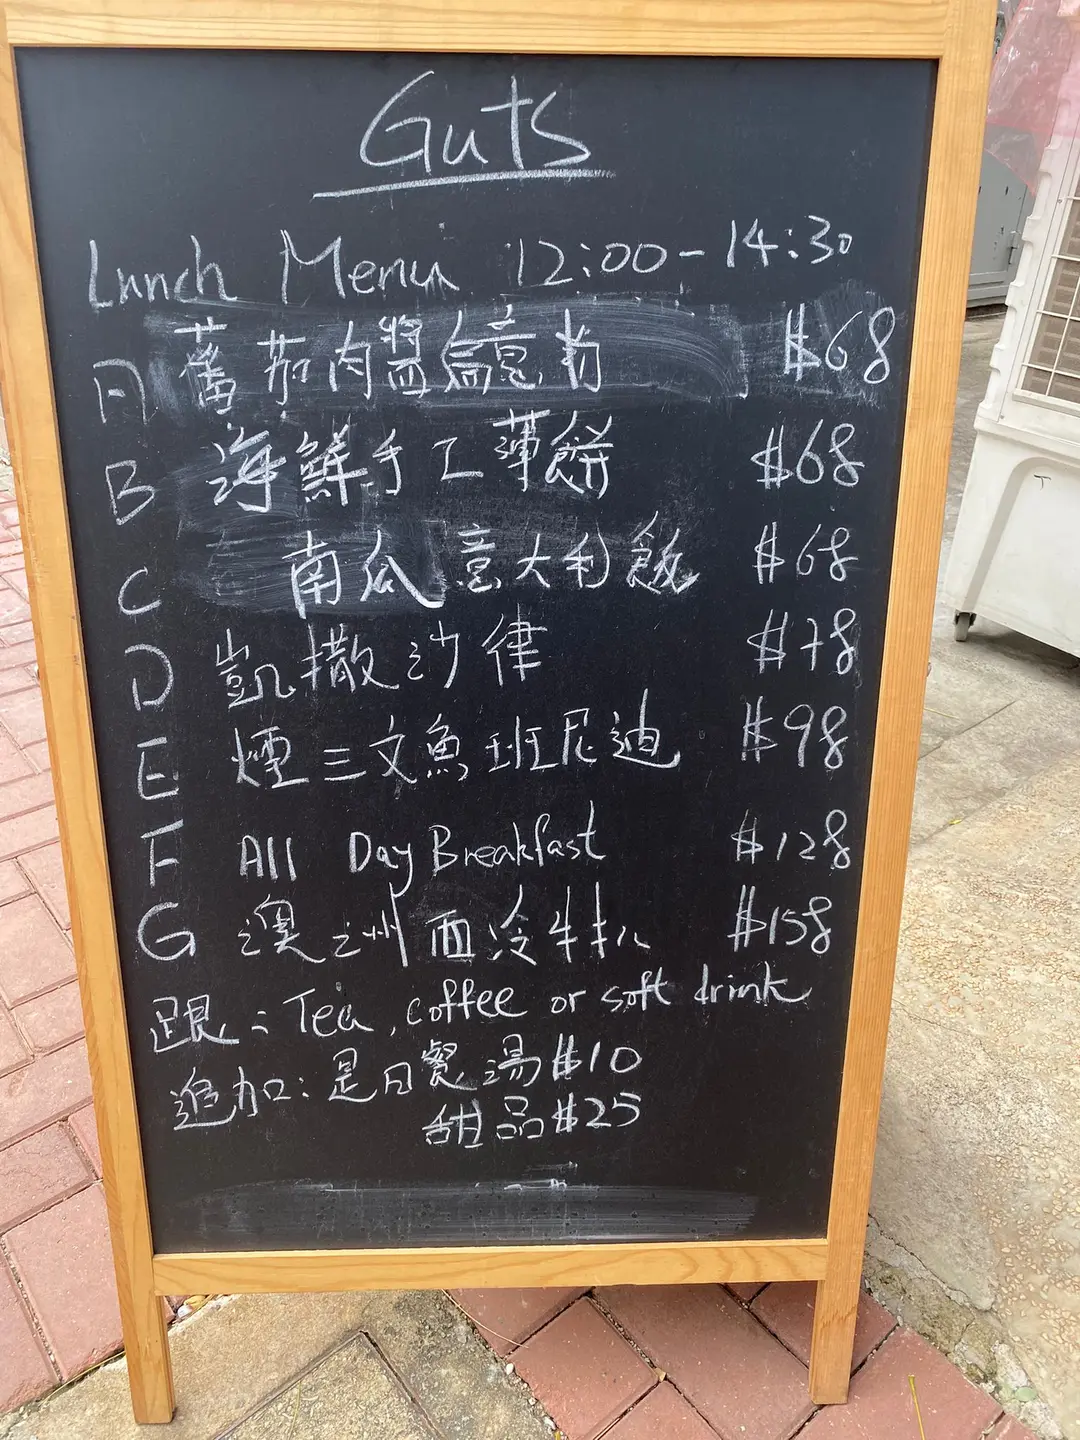 Guts
Lunch Menu 12:00-14:30
A 蕃茄肉醬烏意粉 $68
B 海鮮手工薄餅 $68
C 南瓜意大利飯 $68
D 凱撒沙律 $78
E 煙三文魚班尼迪 $98
F All Day Breakfast $128
G 澳洲西冷牛扒 $158
跟: Tea, coffee or soft drink
追加: 是日餐湯 $10
甜品 $25